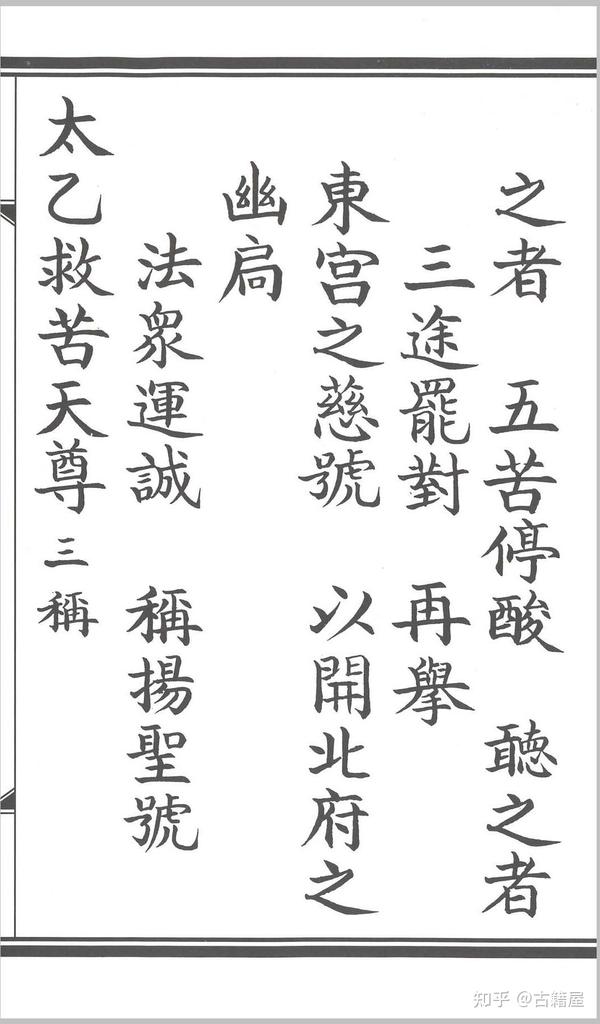 之者　五苦停酸　聽之者
三途罷對　再舉
東宮之慈號　以開北府之
幽扃
法眾運誠　稱揚聖號
太乙救苦天尊 三稱
知乎 @古籍屋